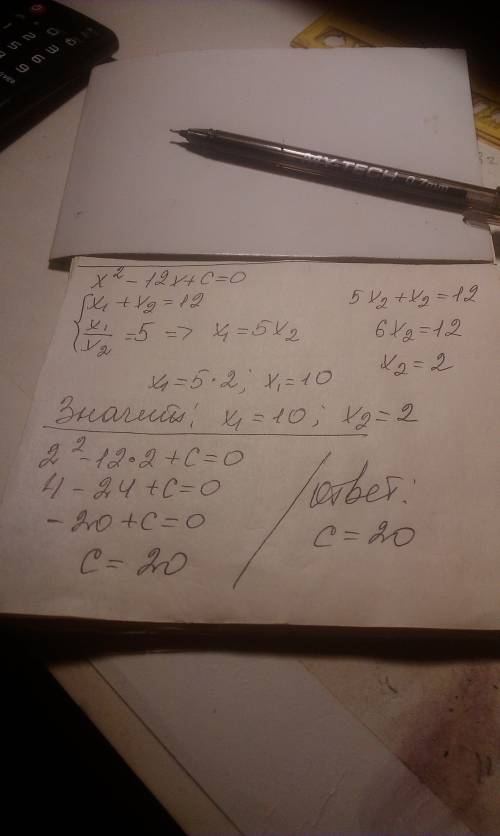 MY-TECH 0.7mm
x² - 12x + c = 0
{ x₁ + x₂ = 12
x₁/x₂ = 5 => x₁ = 5x₂
5x₂ + x₂ = 12
6x₂ = 12
x₂ = 2
x₁ = 5·2; x₁ = 10
Значить: x₁ = 10; x₂ = 2
2² - 12·2 + c = 0
4 - 24 + c = 0
- 20 + c = 0
c = 20
Ответ:
c = 20